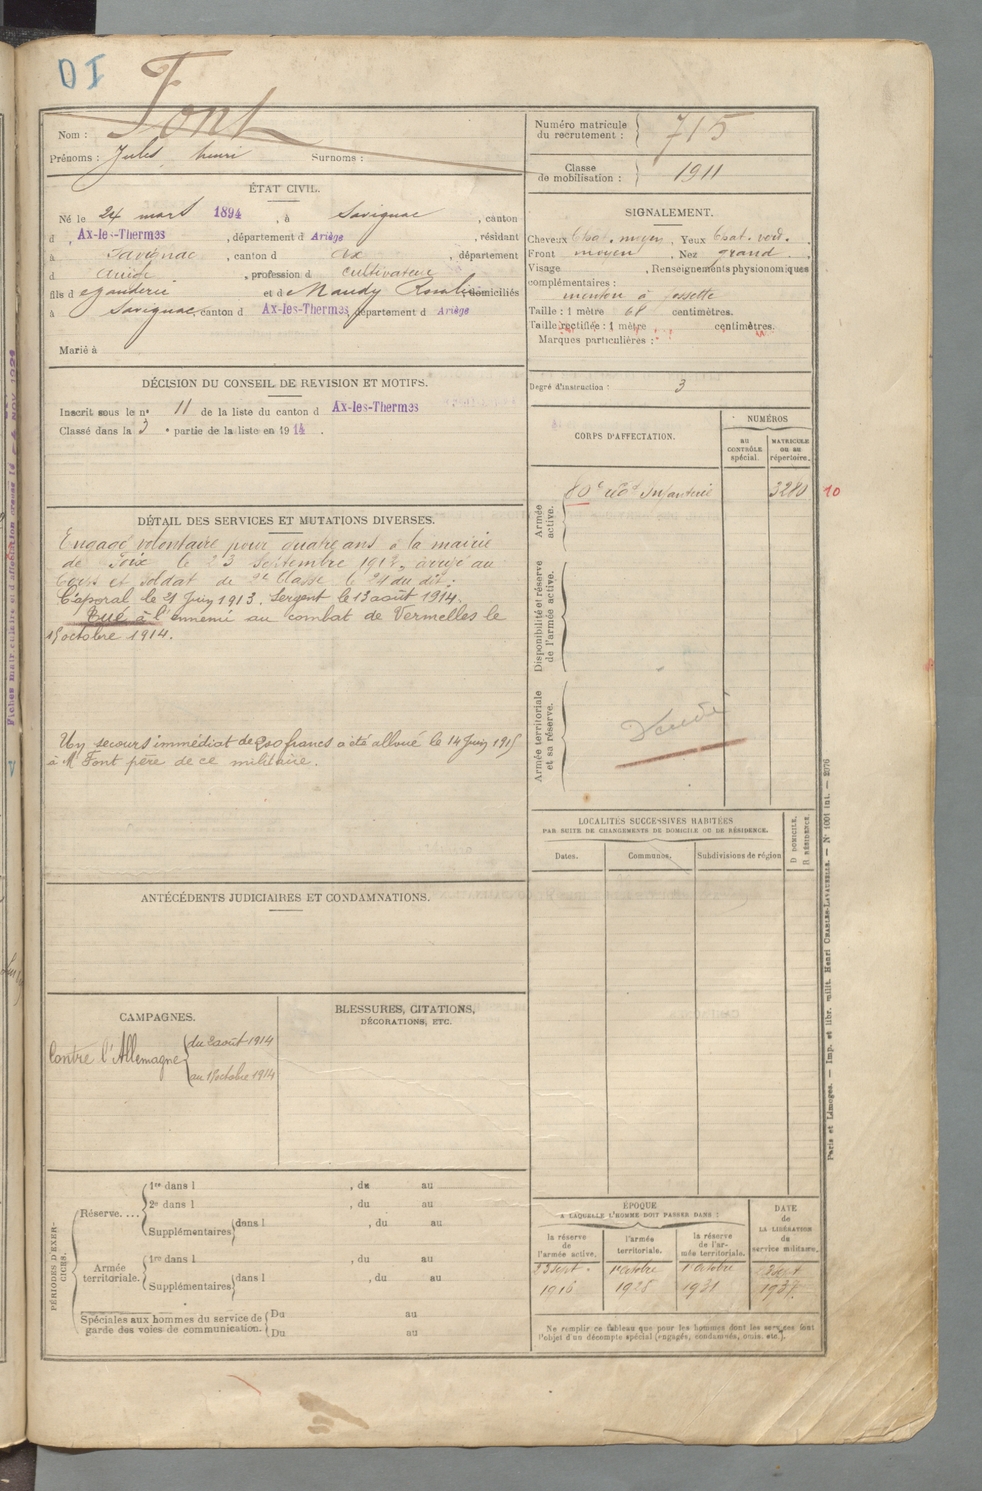 DI
Font
Nom :
Prénoms : Jules henri Surnoms :
Numéro matricule du recrutement : 715
Classe de mobilisation : 1911
ÉTAT CIVIL.
Né le 24 mars 1894, à Savignac, canton
d Ax-les-Thermes, département d Ariège, résidant
à Savignac, canton d Ax, département
d , profession d cultivateur
fils d et de Naudy Rosalie domiciliés
à Savignac, canton d Ax-les-Thermes, département d Ariège
Marié à
SIGNALEMENT.
Cheveux Chat. moyen, Yeux Chat. verd.
Front moyen, Nez grand.
Visage , Renseignements physionomiques
complémentaires :
menton à fossette
Taille : 1 mètre 68 centimètres.
Taille rectifiée : 1 mètre centimètres.
Marques particulières :
Degré d'instruction : 3
DÉCISION DU CONSEIL DE REVISION ET MOTIFS.
Inscrit sous le n° 11 de la liste du canton d Ax-les-Thermes
Classé dans la 3 e partie de la liste en 1914.
DÉTAIL DES SERVICES ET MUTATIONS DIVERSES.
Engagé volontaire pour quatre ans à la mairie
de Foix le 23 Septembre 1912, arrivé au
Corps et soldat de 2e classe le 24 du dit ;
Caporal le 21 Juin 1913. Sergent le 13 août 1914.
Tué à l'ennemi au combat de Vermelles le
octobre 1914.
Un secours immédiat de 200 francs a été alloué le 14 Juin 1915
à M Font père de ce militaire.
CORPS D'AFFECTATION.
NUMÉROS
AU CONTRÔLE spécial.
MATRICULE OU AU répertoire.
Armée active.
80e régt Infanterie 3280 10
Disponibilité et réserve de l'armée active.
Armée territoriale et sa réserve.
LOCALITÉS SUCCESSIVES HABITÉES
PAR SUITE DE CHANGEMENTS DE DOMICILE OU DE RÉSIDENCE.
Dates.
Communes.
Subdivisions de région
D DOMICILE.
R RÉSIDENCE.
ANTÉCÉDENTS JUDICIAIRES ET CONDAMNATIONS.
CAMPAGNES.
Contre l'Allemagne
du 2 août 1914
au octobre 1914
BLESSURES, CITATIONS,
DÉCORATIONS, ETC.
PÉRIODES D'EXERCICES.
Réserve....
1re dans l , du au
2e dans l , du au
Supplémentaires dans l , du au
Armée territoriale.
1re dans l , du au
Supplémentaires dans l , du au
Spéciales aux hommes du service de garde des voies de communication.
Du au
Du au
ÉPOQUE
A LAQUELLE L'HOMME DOIT PASSER DANS :
la réserve de l'armée active.
l'armée territoriale.
la réserve de l'armée territoriale.
DATE de LA LIBÉRATION du service militaire.
23 sept. 1916
1er octobre 1925
1er octobre 1931
Sept
Ne remplir ce tableau que pour les hommes dont les services font
l'objet d'un décompte spécial (engagés, condamnés, omis, etc.).
Paris et Limoges. — Imp. et libr. milit. Henri CHARLES-LAVAUZELLE. — N° 1091 int. — 2976